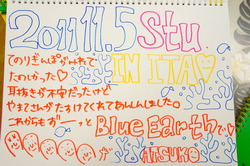 2011.11.5 Stu
IN ITA♡
てのりぎんぽがみれて
たのしかった♡
耳抜きが不安だったけど
やまださんがたすけてくれてあんしんしました。
これからもずーーっと Blue Earthで♡
ATSUKO